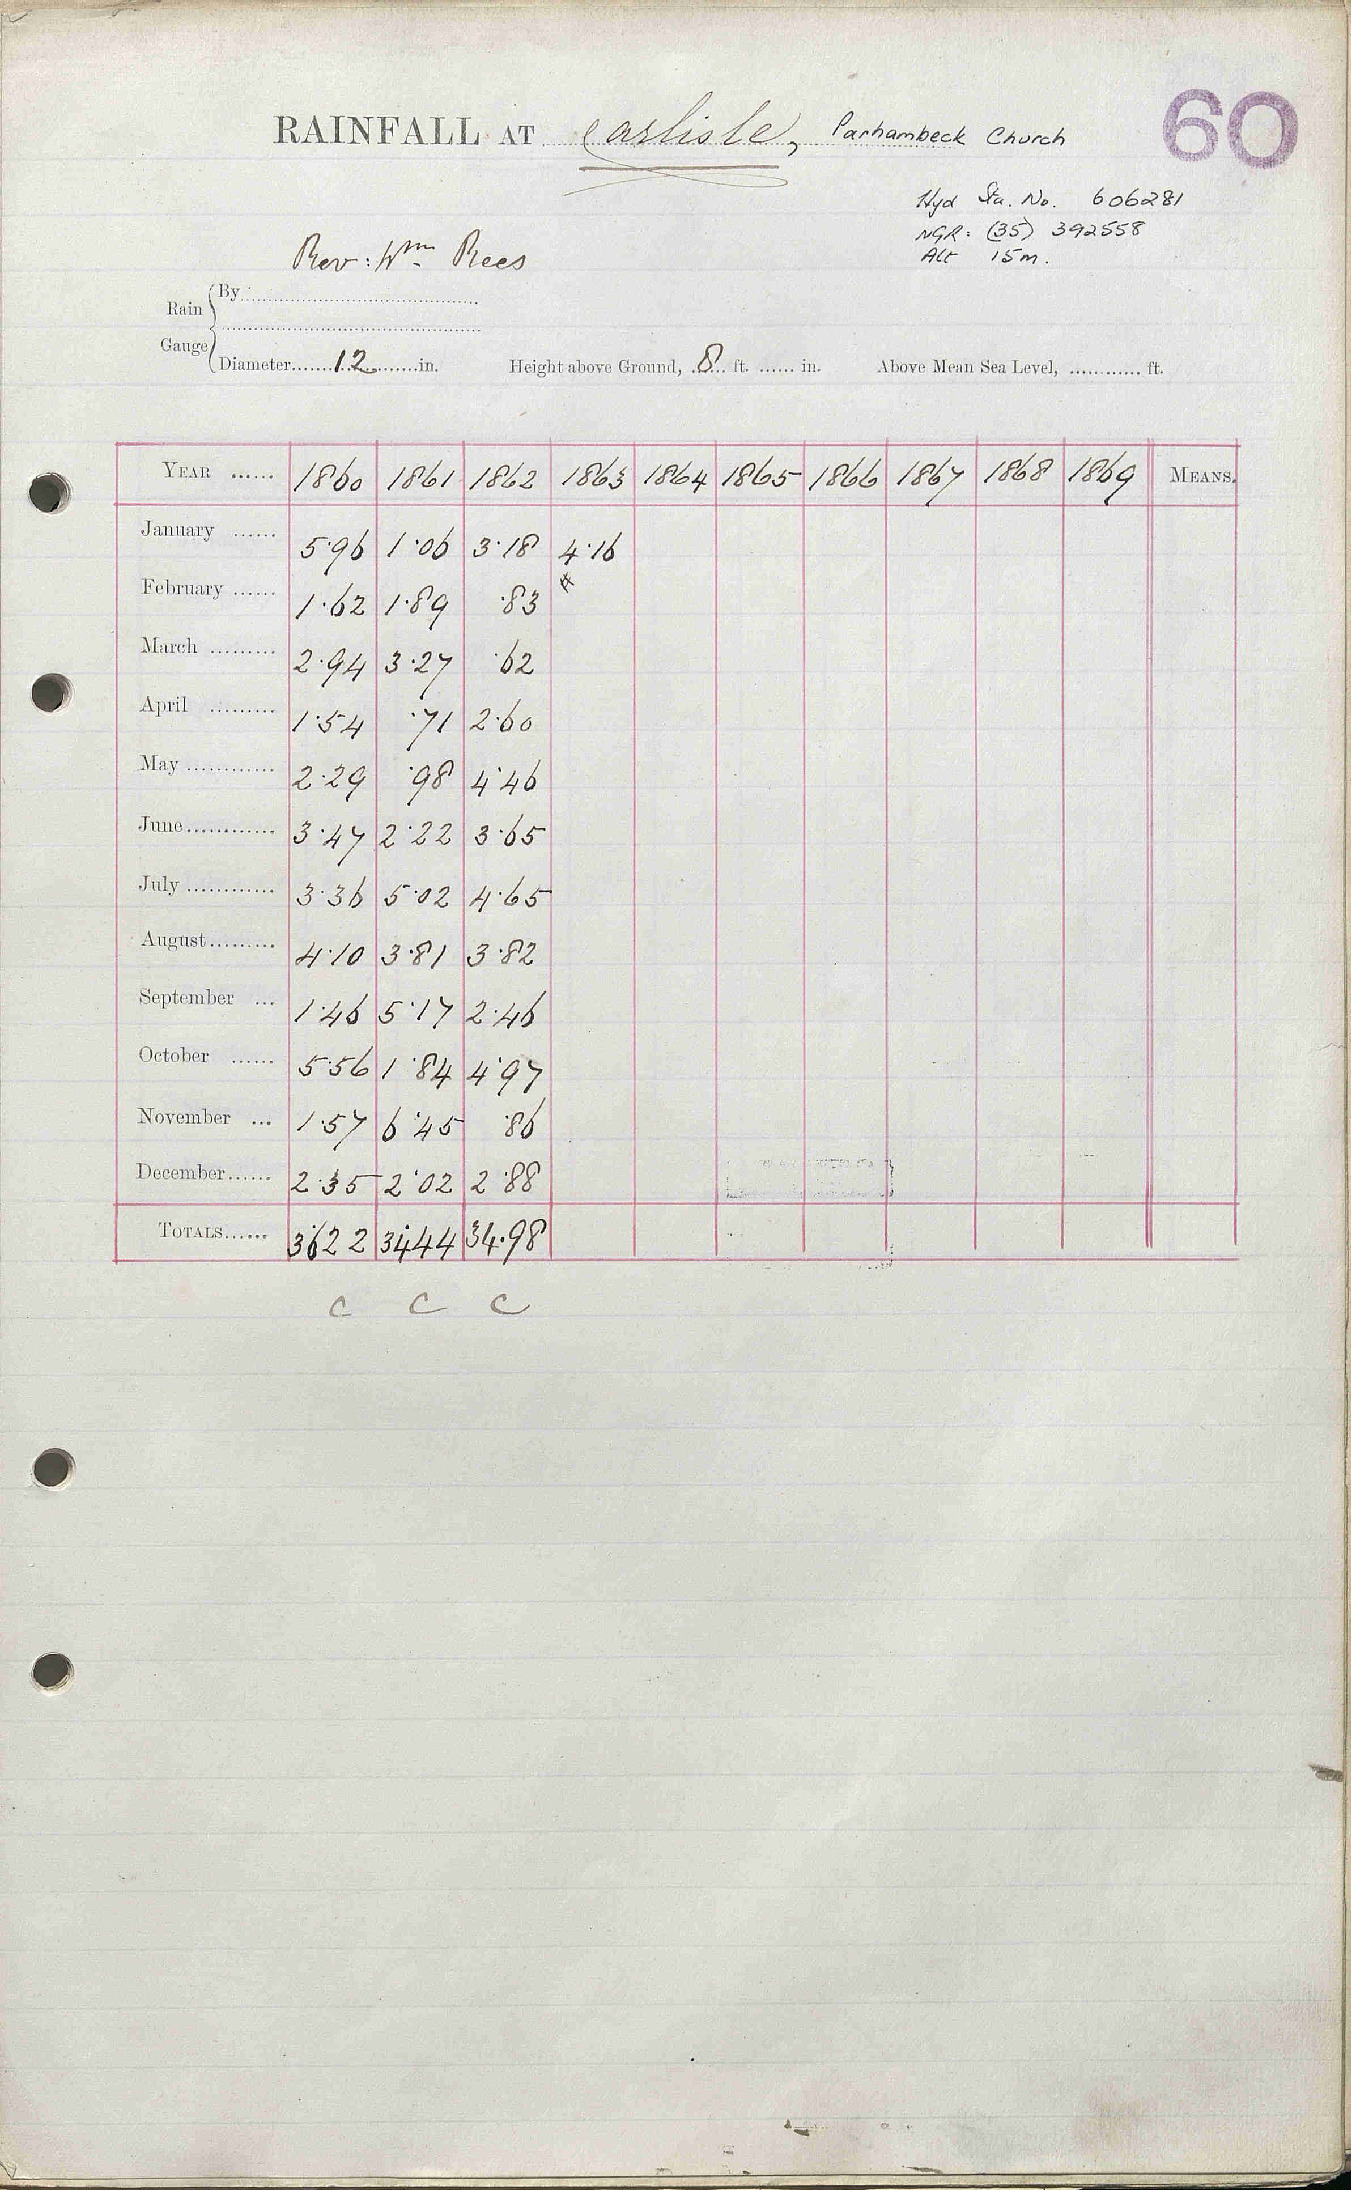 RAINFALL AT Carlisle, Parhambeck Church
60
Hyd Sta. No. 606281
NGR: (35) 392558
Alt 15m.
Rev: Wm Rees
Rain Gauge
By
Diameter 12 in. Height above Ground, 8 ft. in. Above Mean Sea Level, ft.
YEAR 1860 1861 1862 1863 1864 1865 1866 1867 1868 1869 MEANS.
January 5.96 1.06 3.18 4.16
February 1.62 1.89 .83
March 2.94 3.27 .62
April 1.54 .71 2.60
May 2.29 .98 4.46
June 3.47 2.22 3.65
July 3.36 5.02 4.65
August 4.10 3.81 3.82
September 1.46 5.17 2.46
October 5.56 1.84 4.97
November 1.57 6.45 .86
December 2.35 2.02 2.88
TOTALS 36.22 34.44 34.98
C C C